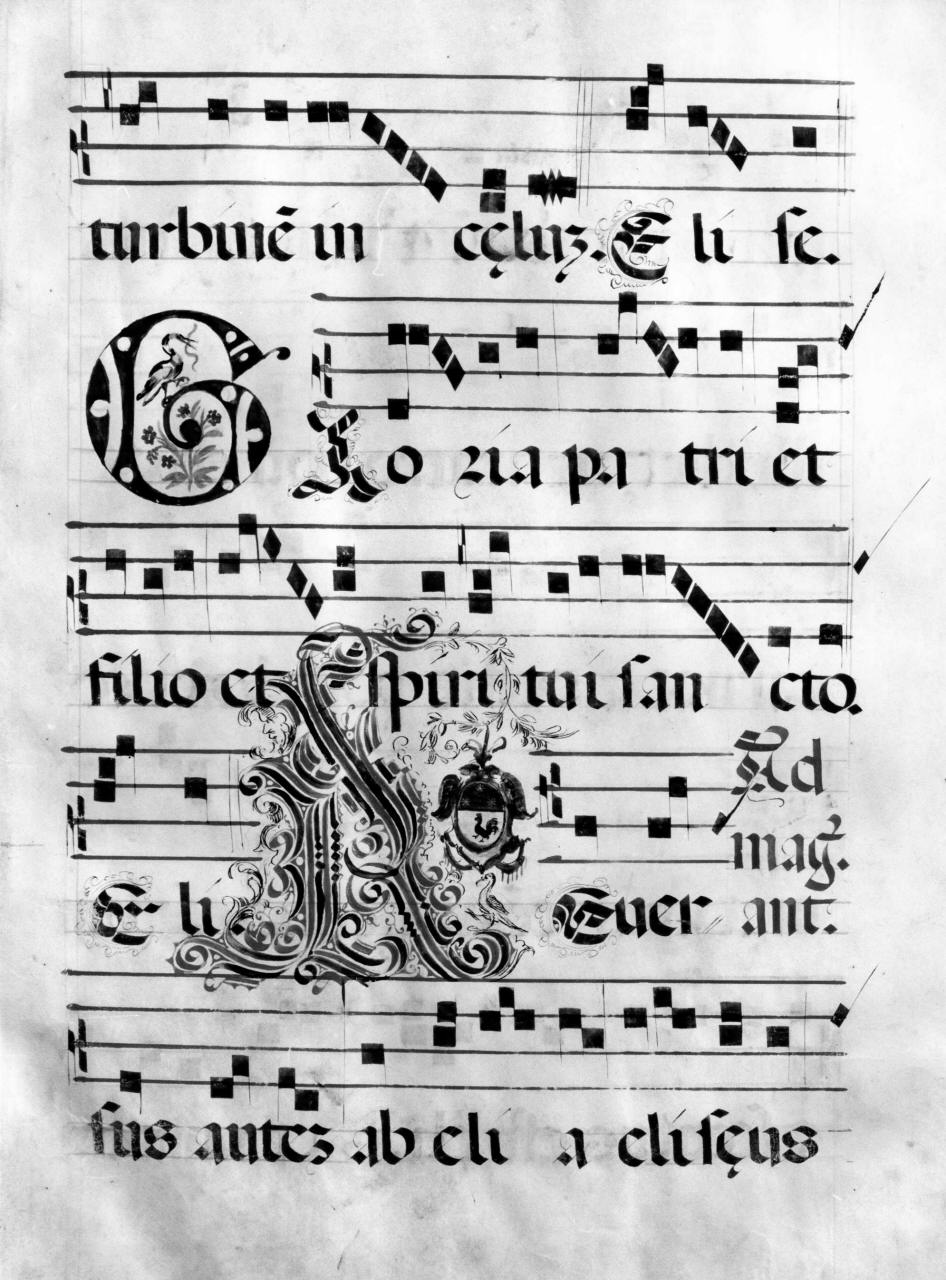 turbinẽ in cęluʒ. E li se.
G Lo ria pa tri et
filio et spiri tui san cto.
Ad
mag̃.
E li. R Euer ant.
sus autez ab eli a elisęus